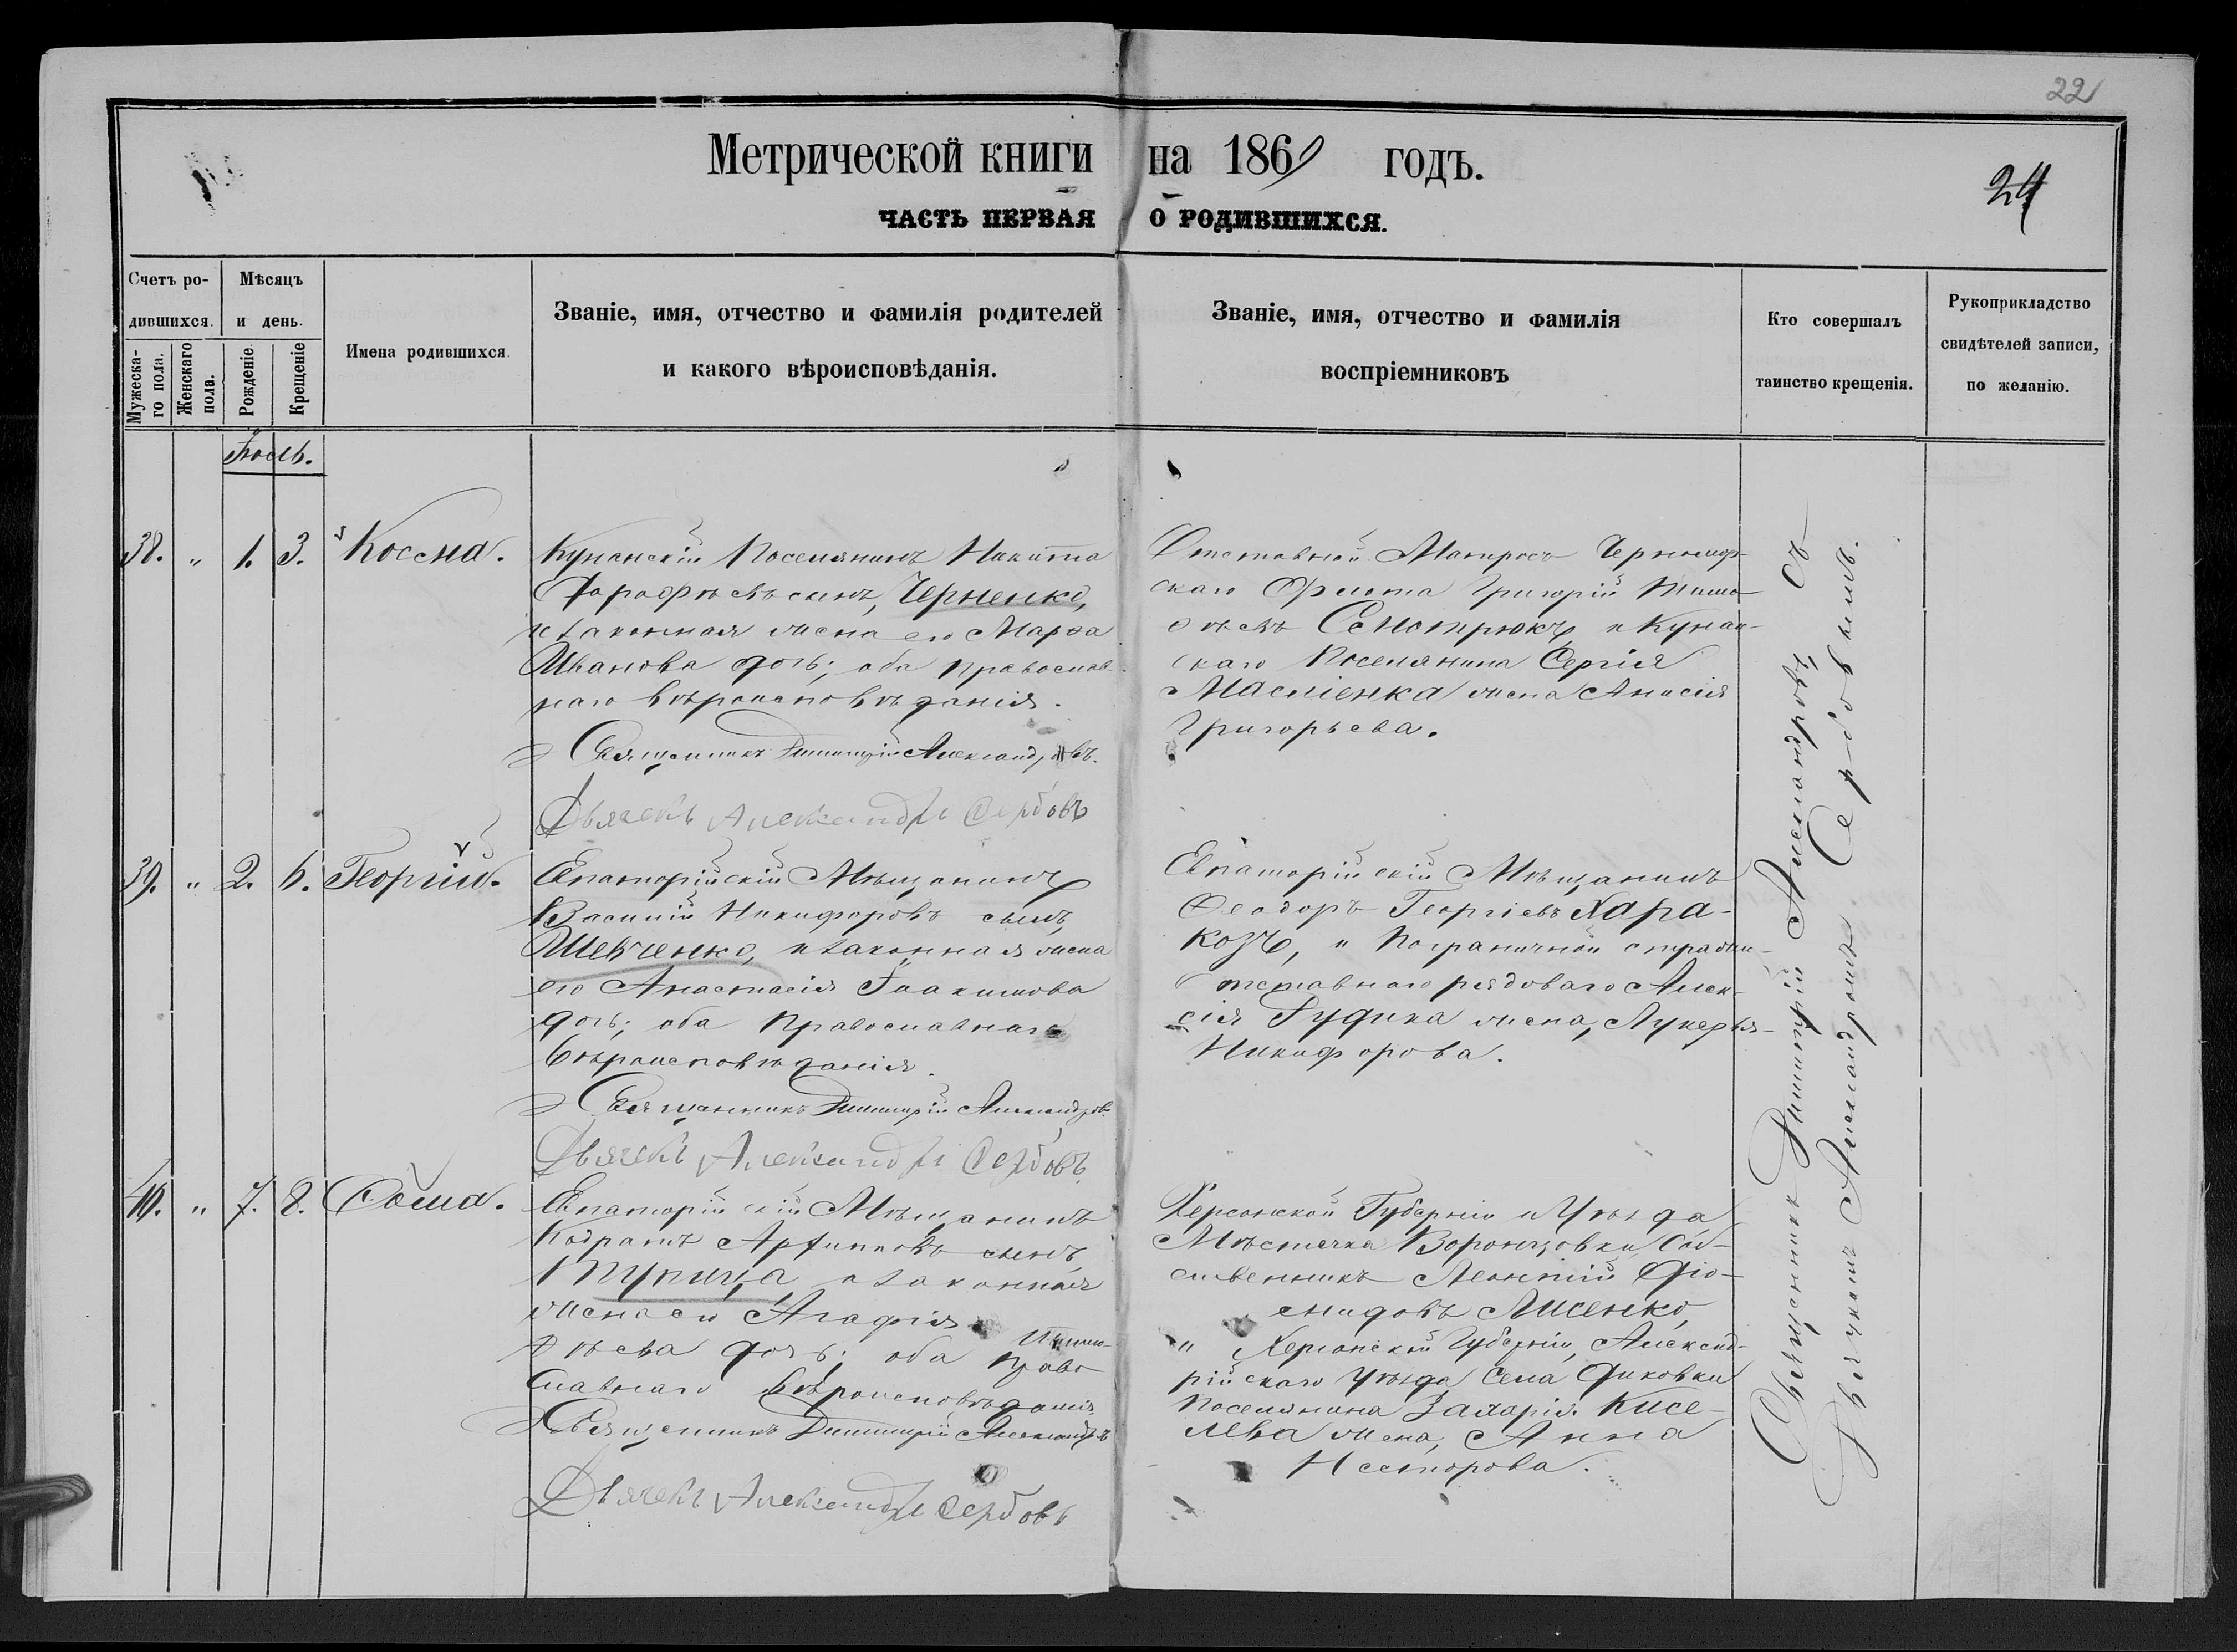 22
Метрической книги на 1869 годъ.
24
ЧАСТЬ ПЕРВАЯ О РОДИВШИХСЯ.
Счетъ ро-
дившихся.
Мужеска-
го пола.
Женскаго
пола.
Мѣсяцъ
и день.
Рожденіе.
Крещеніе
Имена родившихся.
Званіе, имя, отчество и фамилія родителей
и какого вѣроисповѣданія.
Званіе, имя, отчество и фамилія
воспріемниковъ
Кто совершалъ
таинство крещенія.
Рукоприкладство
свидѣтелей записи,
по желанію.
Іюль.
38. " 1. 3. Косма.
Кунанскій Поселянинъ Никита
сынъ, Черненко,
и законная жена его Марѳа
Иванова дочь; оба православ-
наго вѣроисповѣданія.
Священникъ Димитрій Александровъ.
Дьячекъ Александръ Сербовъ
Отставной Матросъ Черномор-
скаго Флота Григорій Тимо-
ѳѣевъ Сенотрюкъ, и Кунан-
скаго Поселянина Сергія
Маслѣнка жена Анисія
Григорьева.
39. " 2. 6. Георгій.
Евпаторійскій Мѣщанинъ
Василій Никифоровъ сынъ,
Шевченко, и законная жена
его Анастасія Іоакимова
дочь; оба Православнаго
вѣроисповѣданія.
Священникъ Димитрій Александровъ
Дьячекъ Александръ Сербовъ
Евпаторійскій Мѣщанинъ
Ѳеодоръ Георгіевъ Хара-
козъ, и Пограничной стражи
отставнаго рядоваго Алек-
сія Гудика жена, Лукерья
Никифорова.
40. " 7. 8. Ѳома.
Евпаторійскій Мѣщанинъ
Кодратъ Архиповъ сынъ,
и законная
жена его Агафія Тимо-
ѳѣева дочь; оба Право-
славнаго вѣроисповѣданія
Священникъ Димитрій Александровъ
Дьячекъ Александръ Сербовъ
Херсонской Губерніи и Уѣзда
Мѣстечка Воронцовки, Соб-
ственникъ Леонтій Діо-
мидовъ Лисенко,
и Херсонской Губерніи, Александ-
рійскаго Уѣзда Села Диковки
Поселянина Захарія Кисе-
лева жена, Анна
Несторова.
Священникъ Димитрій Александровъ, съ
Дьячкомъ Александромъ Сербовымъ.